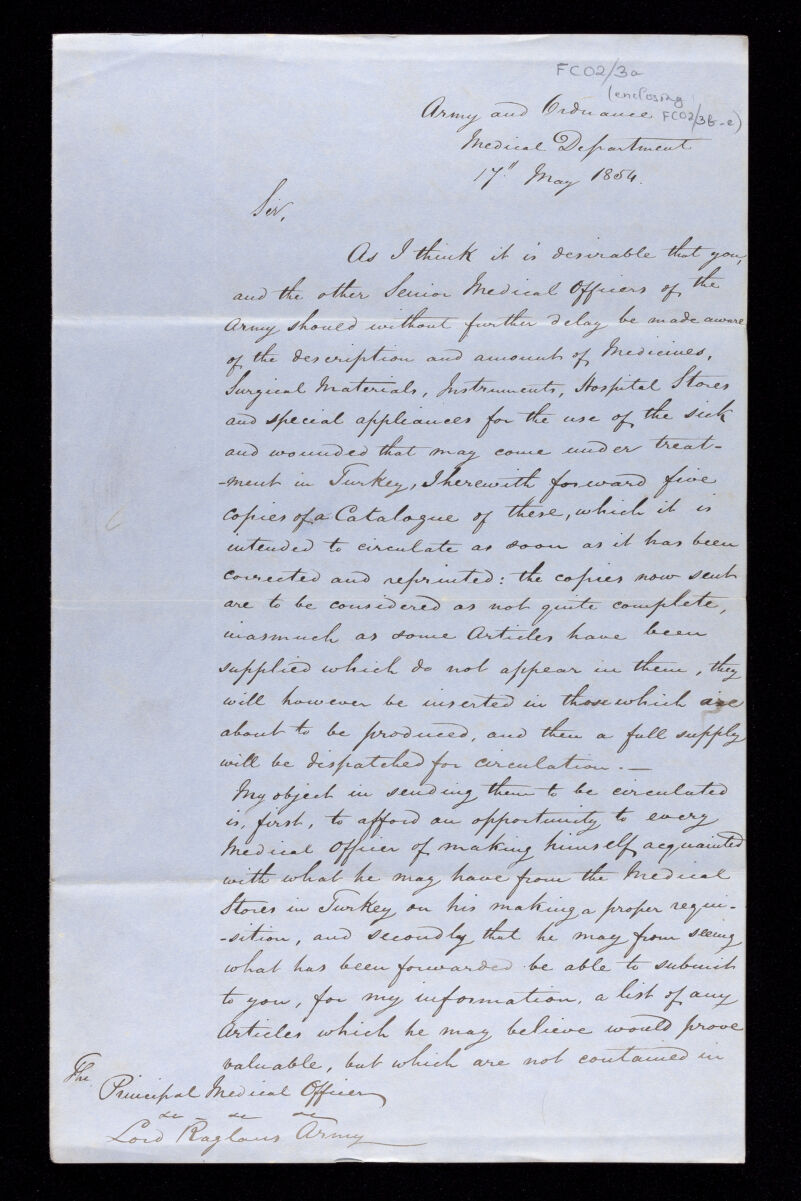 FC02/3a
(enclosing
FC02/3b-e)
Army and Ordnance
Medical Department
17" May 1854.
Sir,
As I think it is desirable that you,
and the other Senior Medical Officers of the
Army should without further delay be made aware
of the description and amount of Medicines,
Surgical Materials, Instruments, Hospital Stores
and special appliances for the use of the sick
and wounded that may come under treat-
-ment in Turkey, I herewith forward five
copies of a Catalogue of these, which it is
intended to circulate as soon as it has been
corrected and reprinted: the copies now sent
are to be considered as not quite complete,
inasmuch as some Articles have been
supplied which do not appear in them, they
will however be inserted in those which are
about to be produced, and then a full supply
will be dispatched for circulation. —
My object in sending them to be circulated
is, first, to afford an opportunity to every
Medical Officer of making himself acquainted
with what he may have from the Medical
Stores in Turkey on his making a proper requi-
-sition, and secondly that he may from seeing
what has been forwarded be able to submit
to you, for my information, a list of any
Articles which he may believe would prove
valuable, but which are not contained in
The
Principal Medical Officer
Lord Raglans Army